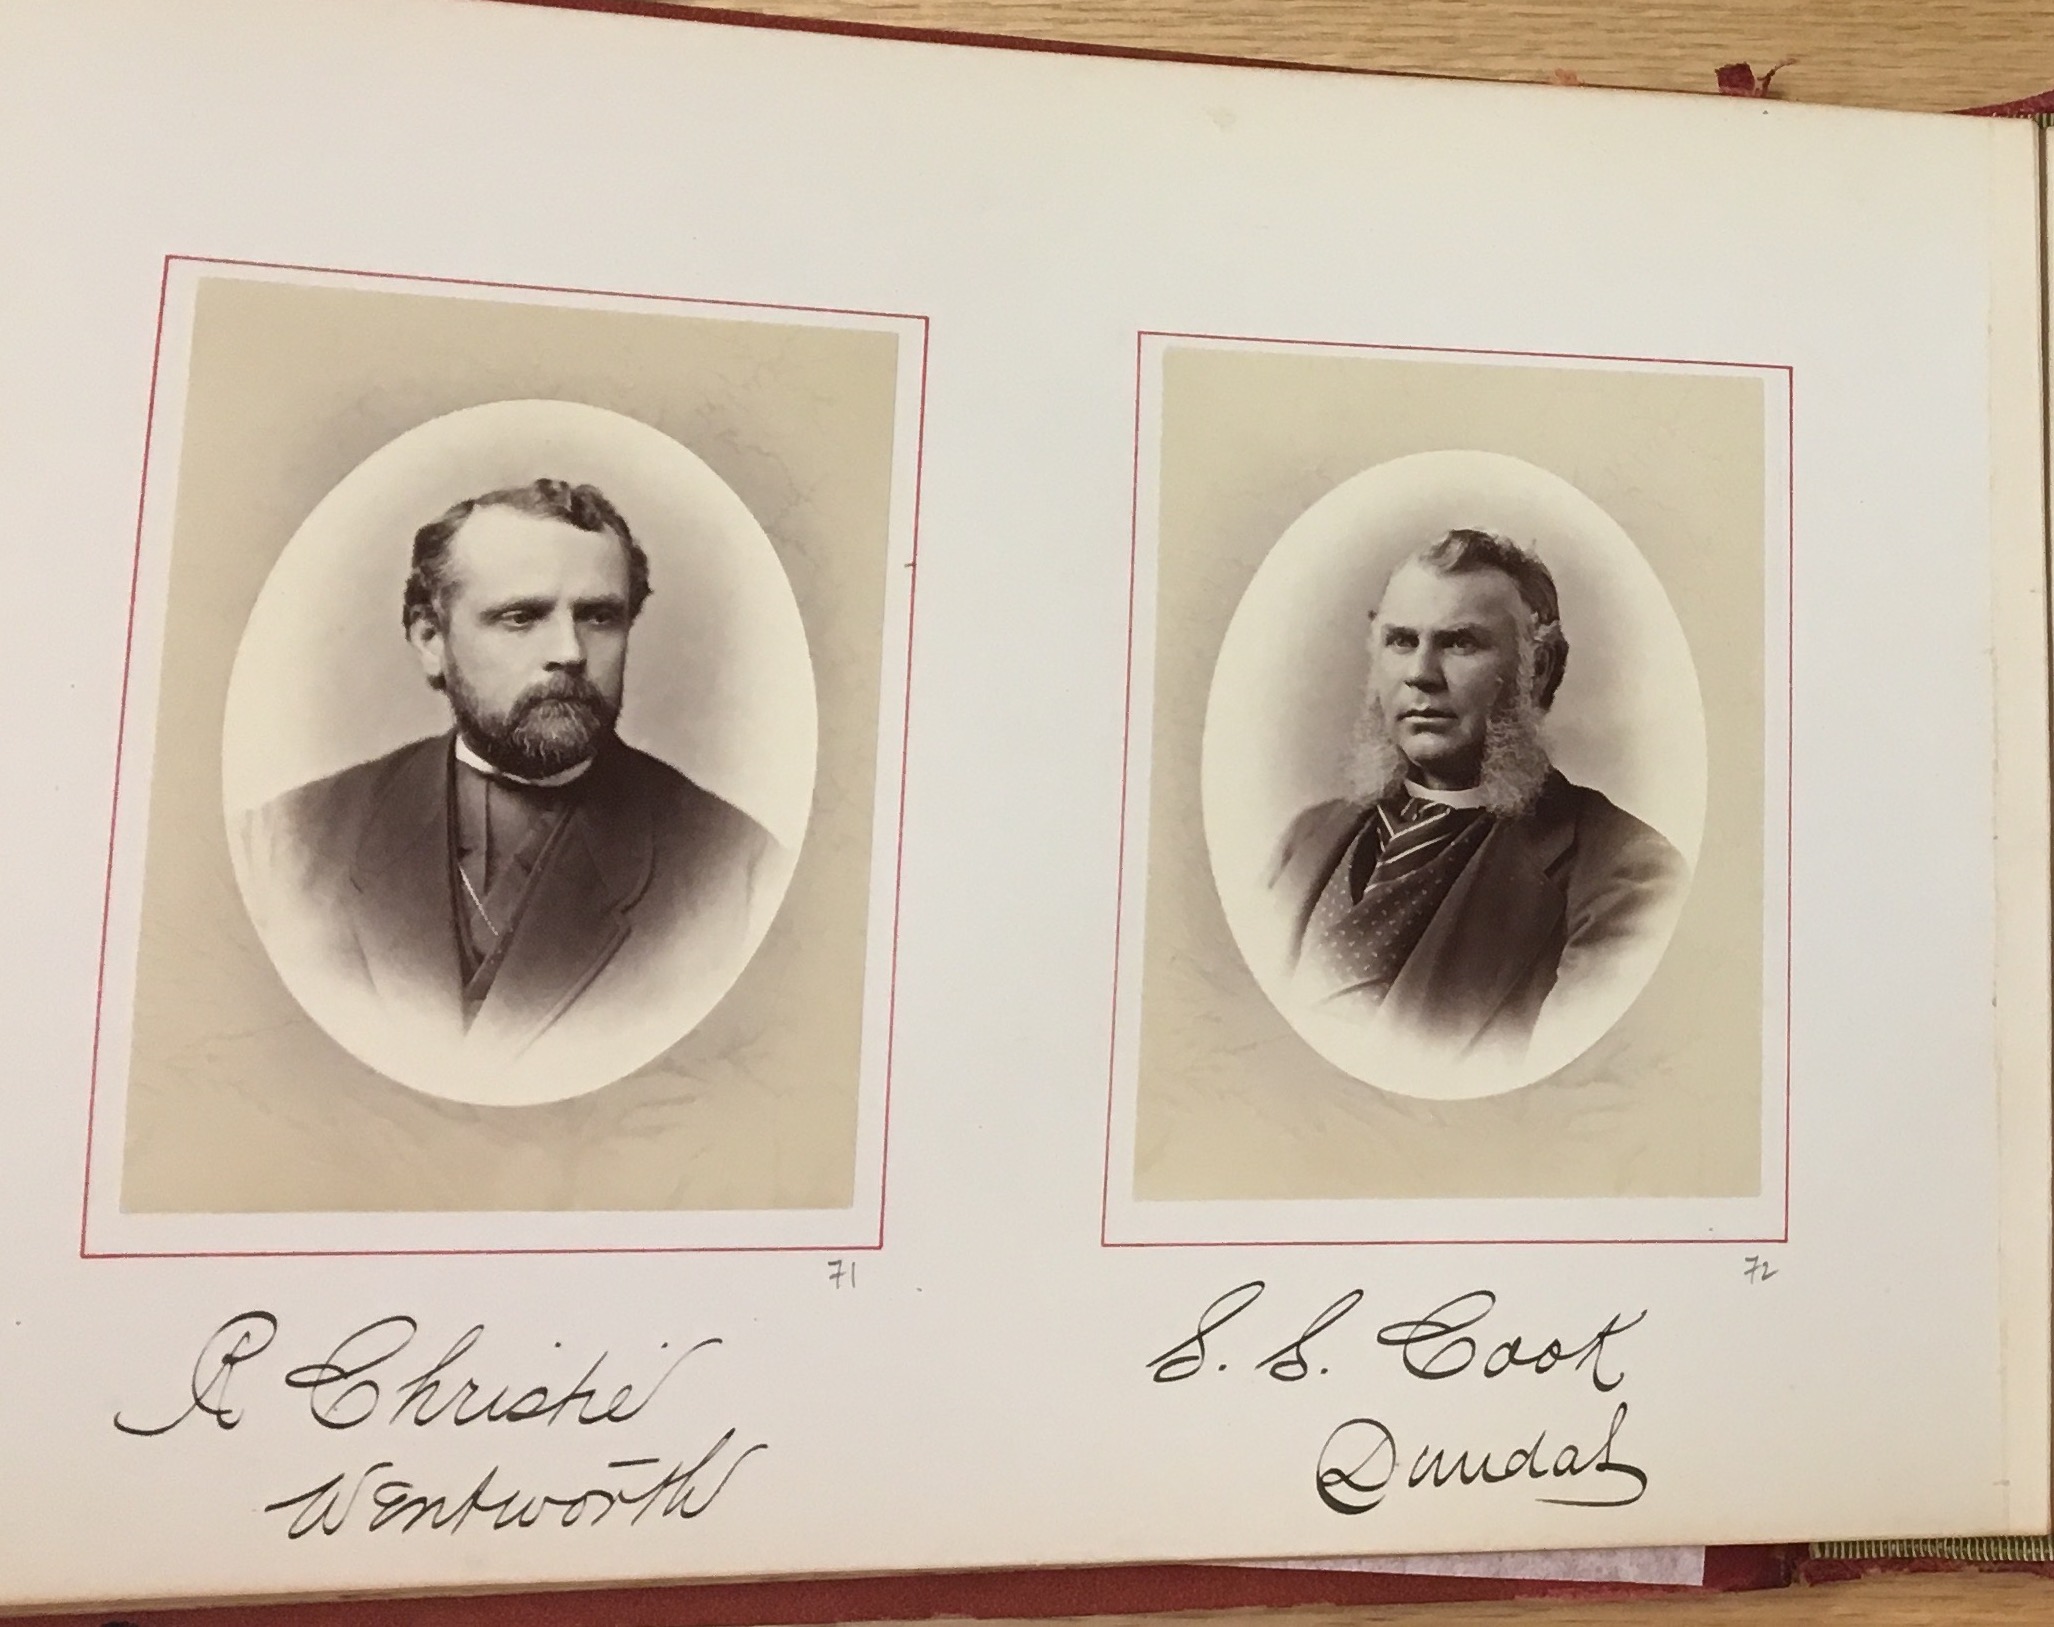 71
R Christie
Wentworth
72
S. S. Cook
Dundas